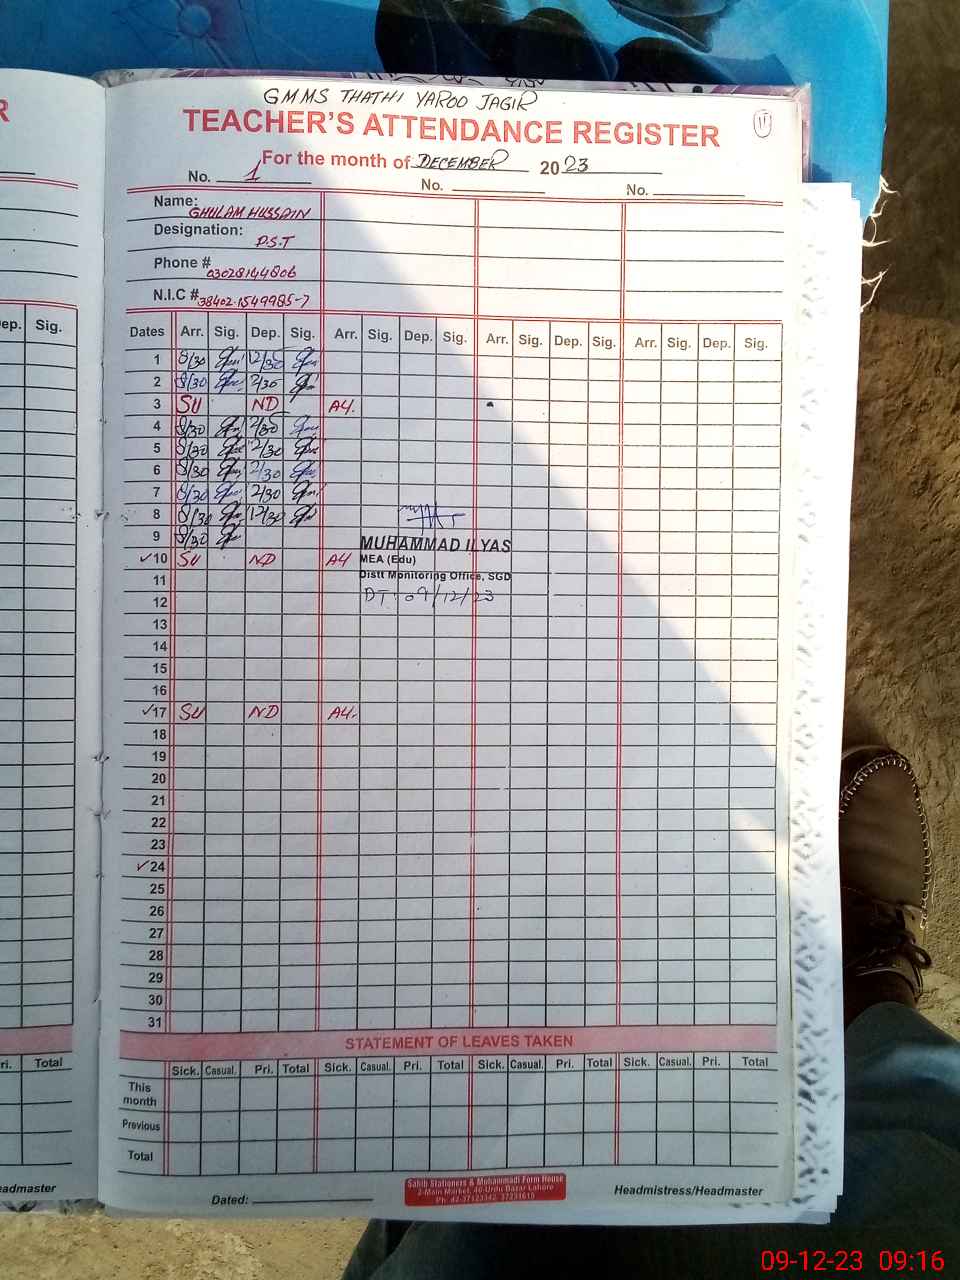 GMMS THATHI YAROO JAGIR
TEACHER'S ATTENDANCE REGISTER
11
For the month of DECEMBER 2023
No. 1 No. No.
Name: GHULAM HUSSAIN
Designation: P.S.T
Phone # 03028144806
N.I.C # 38402-1549985-7
Dates Arr. Sig. Dep. Sig. Arr. Sig. Dep. Sig. Arr. Sig. Dep. Sig. Arr. Sig. Dep. Sig.
1 8/30 12/30
2 8/30 2/30
3 SU ND A4.
4 8/30 2/30
5 8/30 2/30
6 8/30 2/30
7 8/30 2/30
8 8/30 12/30
9 8/30
MUHAMMAD ILYAS
✓10 SU ND A4
MEA (Edu)
11
Distt Monitoring Office, SGD
12
DT: 09/12/23
13
14
15
16
✓17 SU ND A4.
18
19
20
21
22
23
✓24
25
26
27
28
29
30
31
STATEMENT OF LEAVES TAKEN
Sick. Casual. Pri. Total Sick. Casual. Pri. Total Sick. Casual. Pri. Total Sick. Casual. Pri. Total
This month
Previous
Total
Dated:
Sahib Stationers & Muhammadi Form House
2-Main Market, 40-Urdu Bazar Lahore
Ph: 42-37123342, 37231615
Headmistress/Headmaster
R
Dep. Sig.
ri. Total
eadmaster
09-12-23 09:16